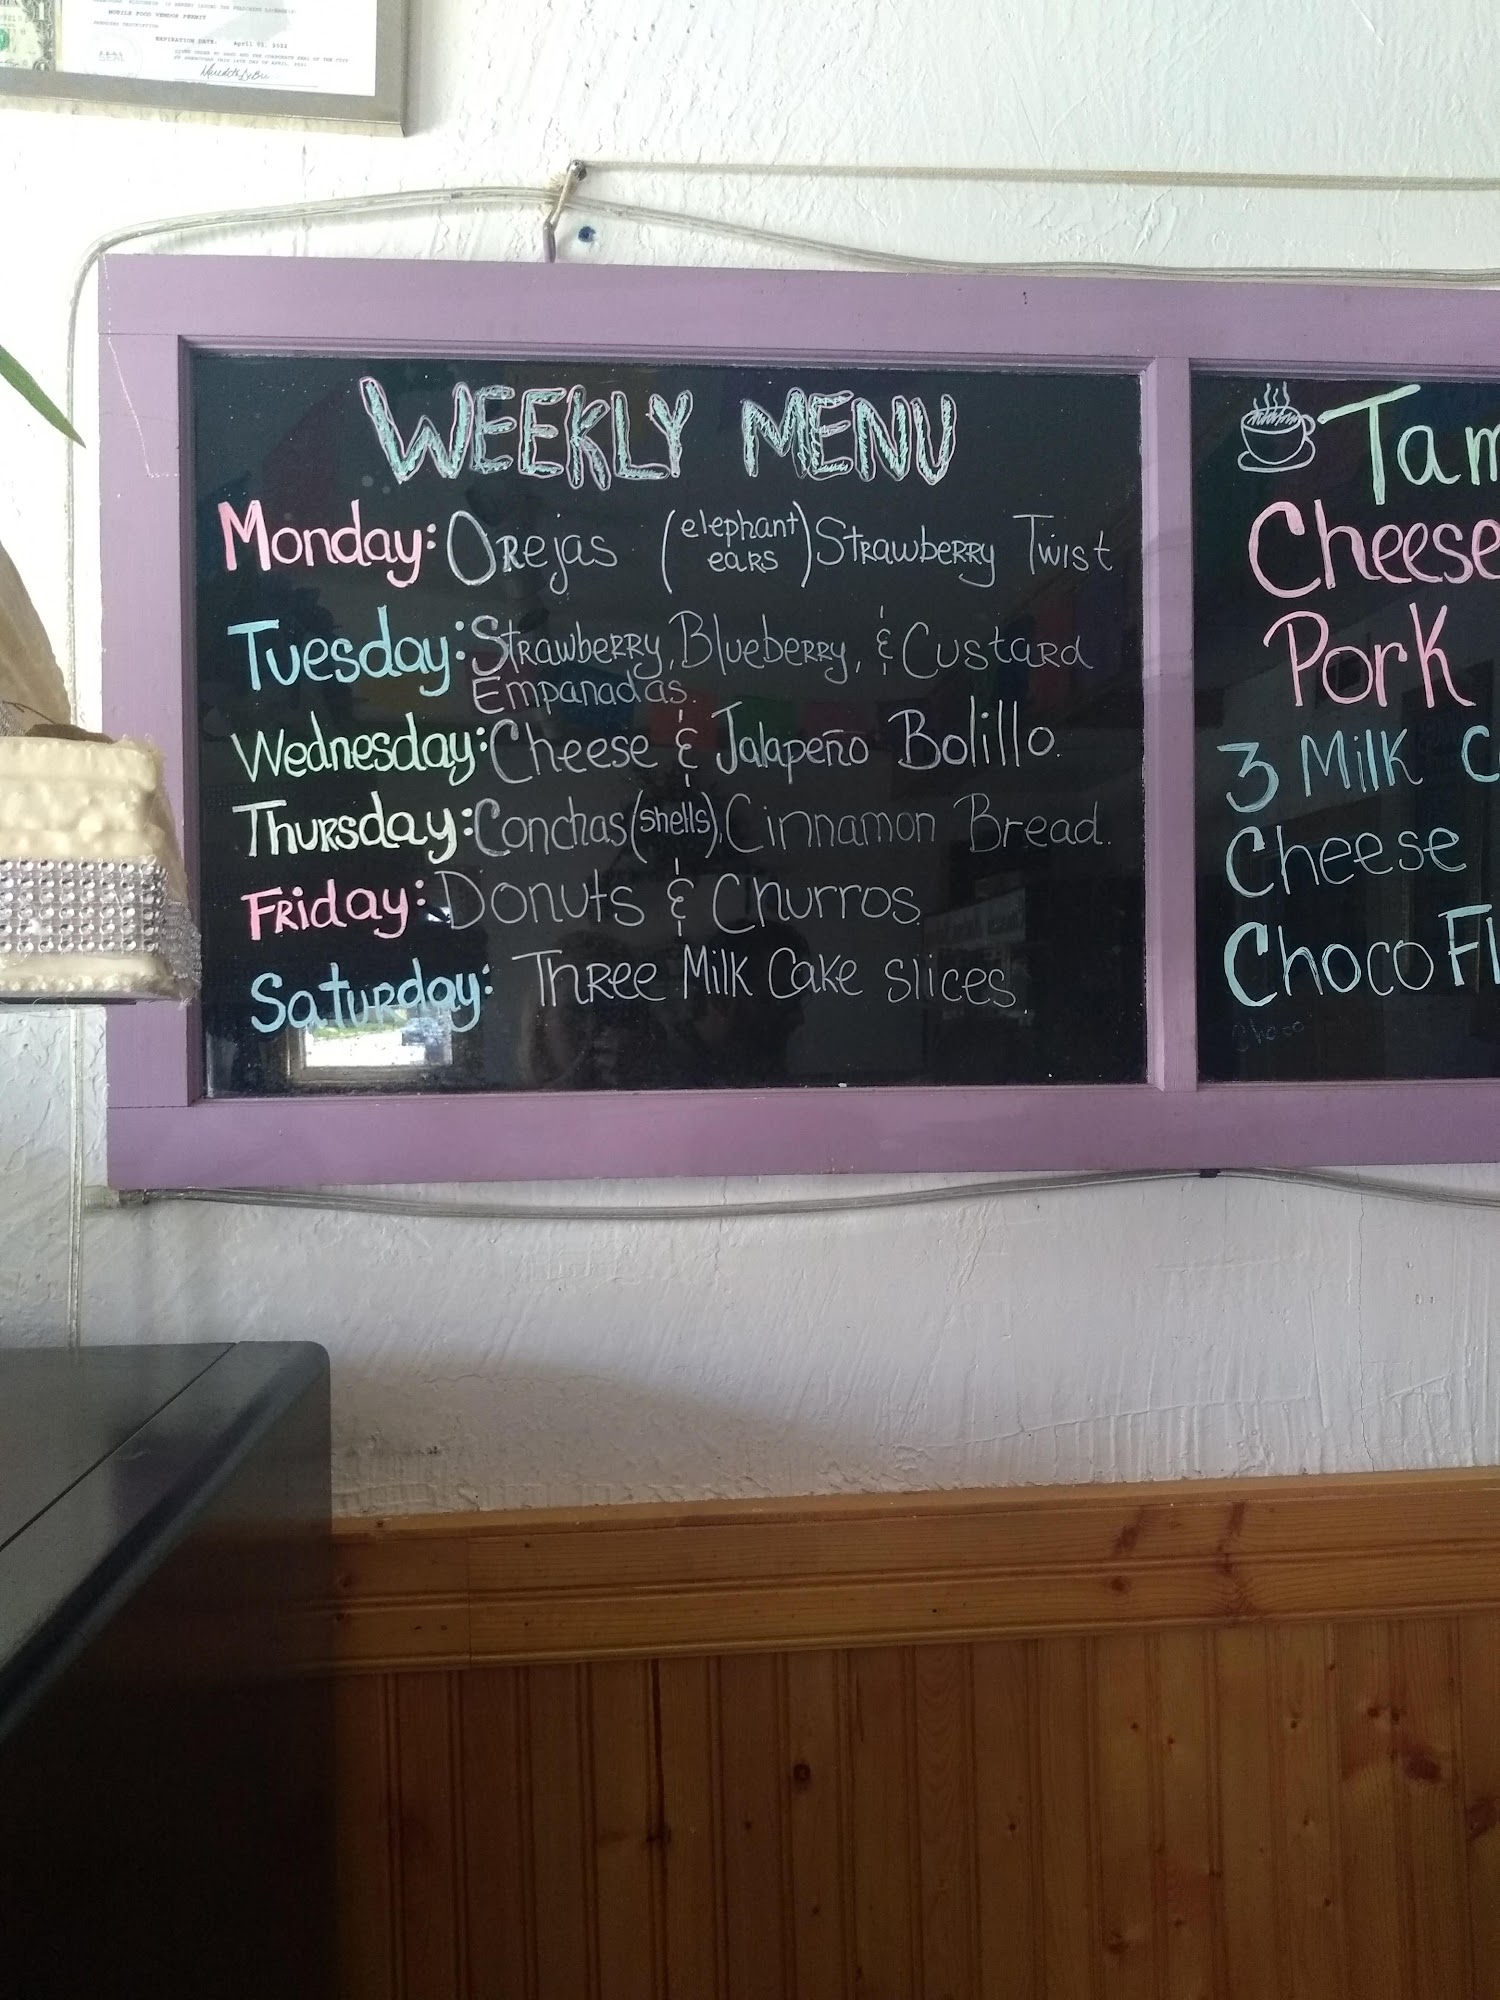 MOBILE FOOD VENDOR PERMIT
EXPIRATION DATE: April 01, 2022
WEEKLY MENU
Monday: Orejas (elephant ears) Strawberry Twist
Tuesday: Strawberry, Blueberry, & Custard
Empanadas.
Wednesday: Cheese & Jalapeño Bolillo.
Thursday: Conchas (shells), Cinnamon Bread.
Friday: Donuts & Churros.
Saturday: Three Milk Cake slices.
Tam
Cheese
Pork
3 Milk C
Cheese
Choco Fl
Choco